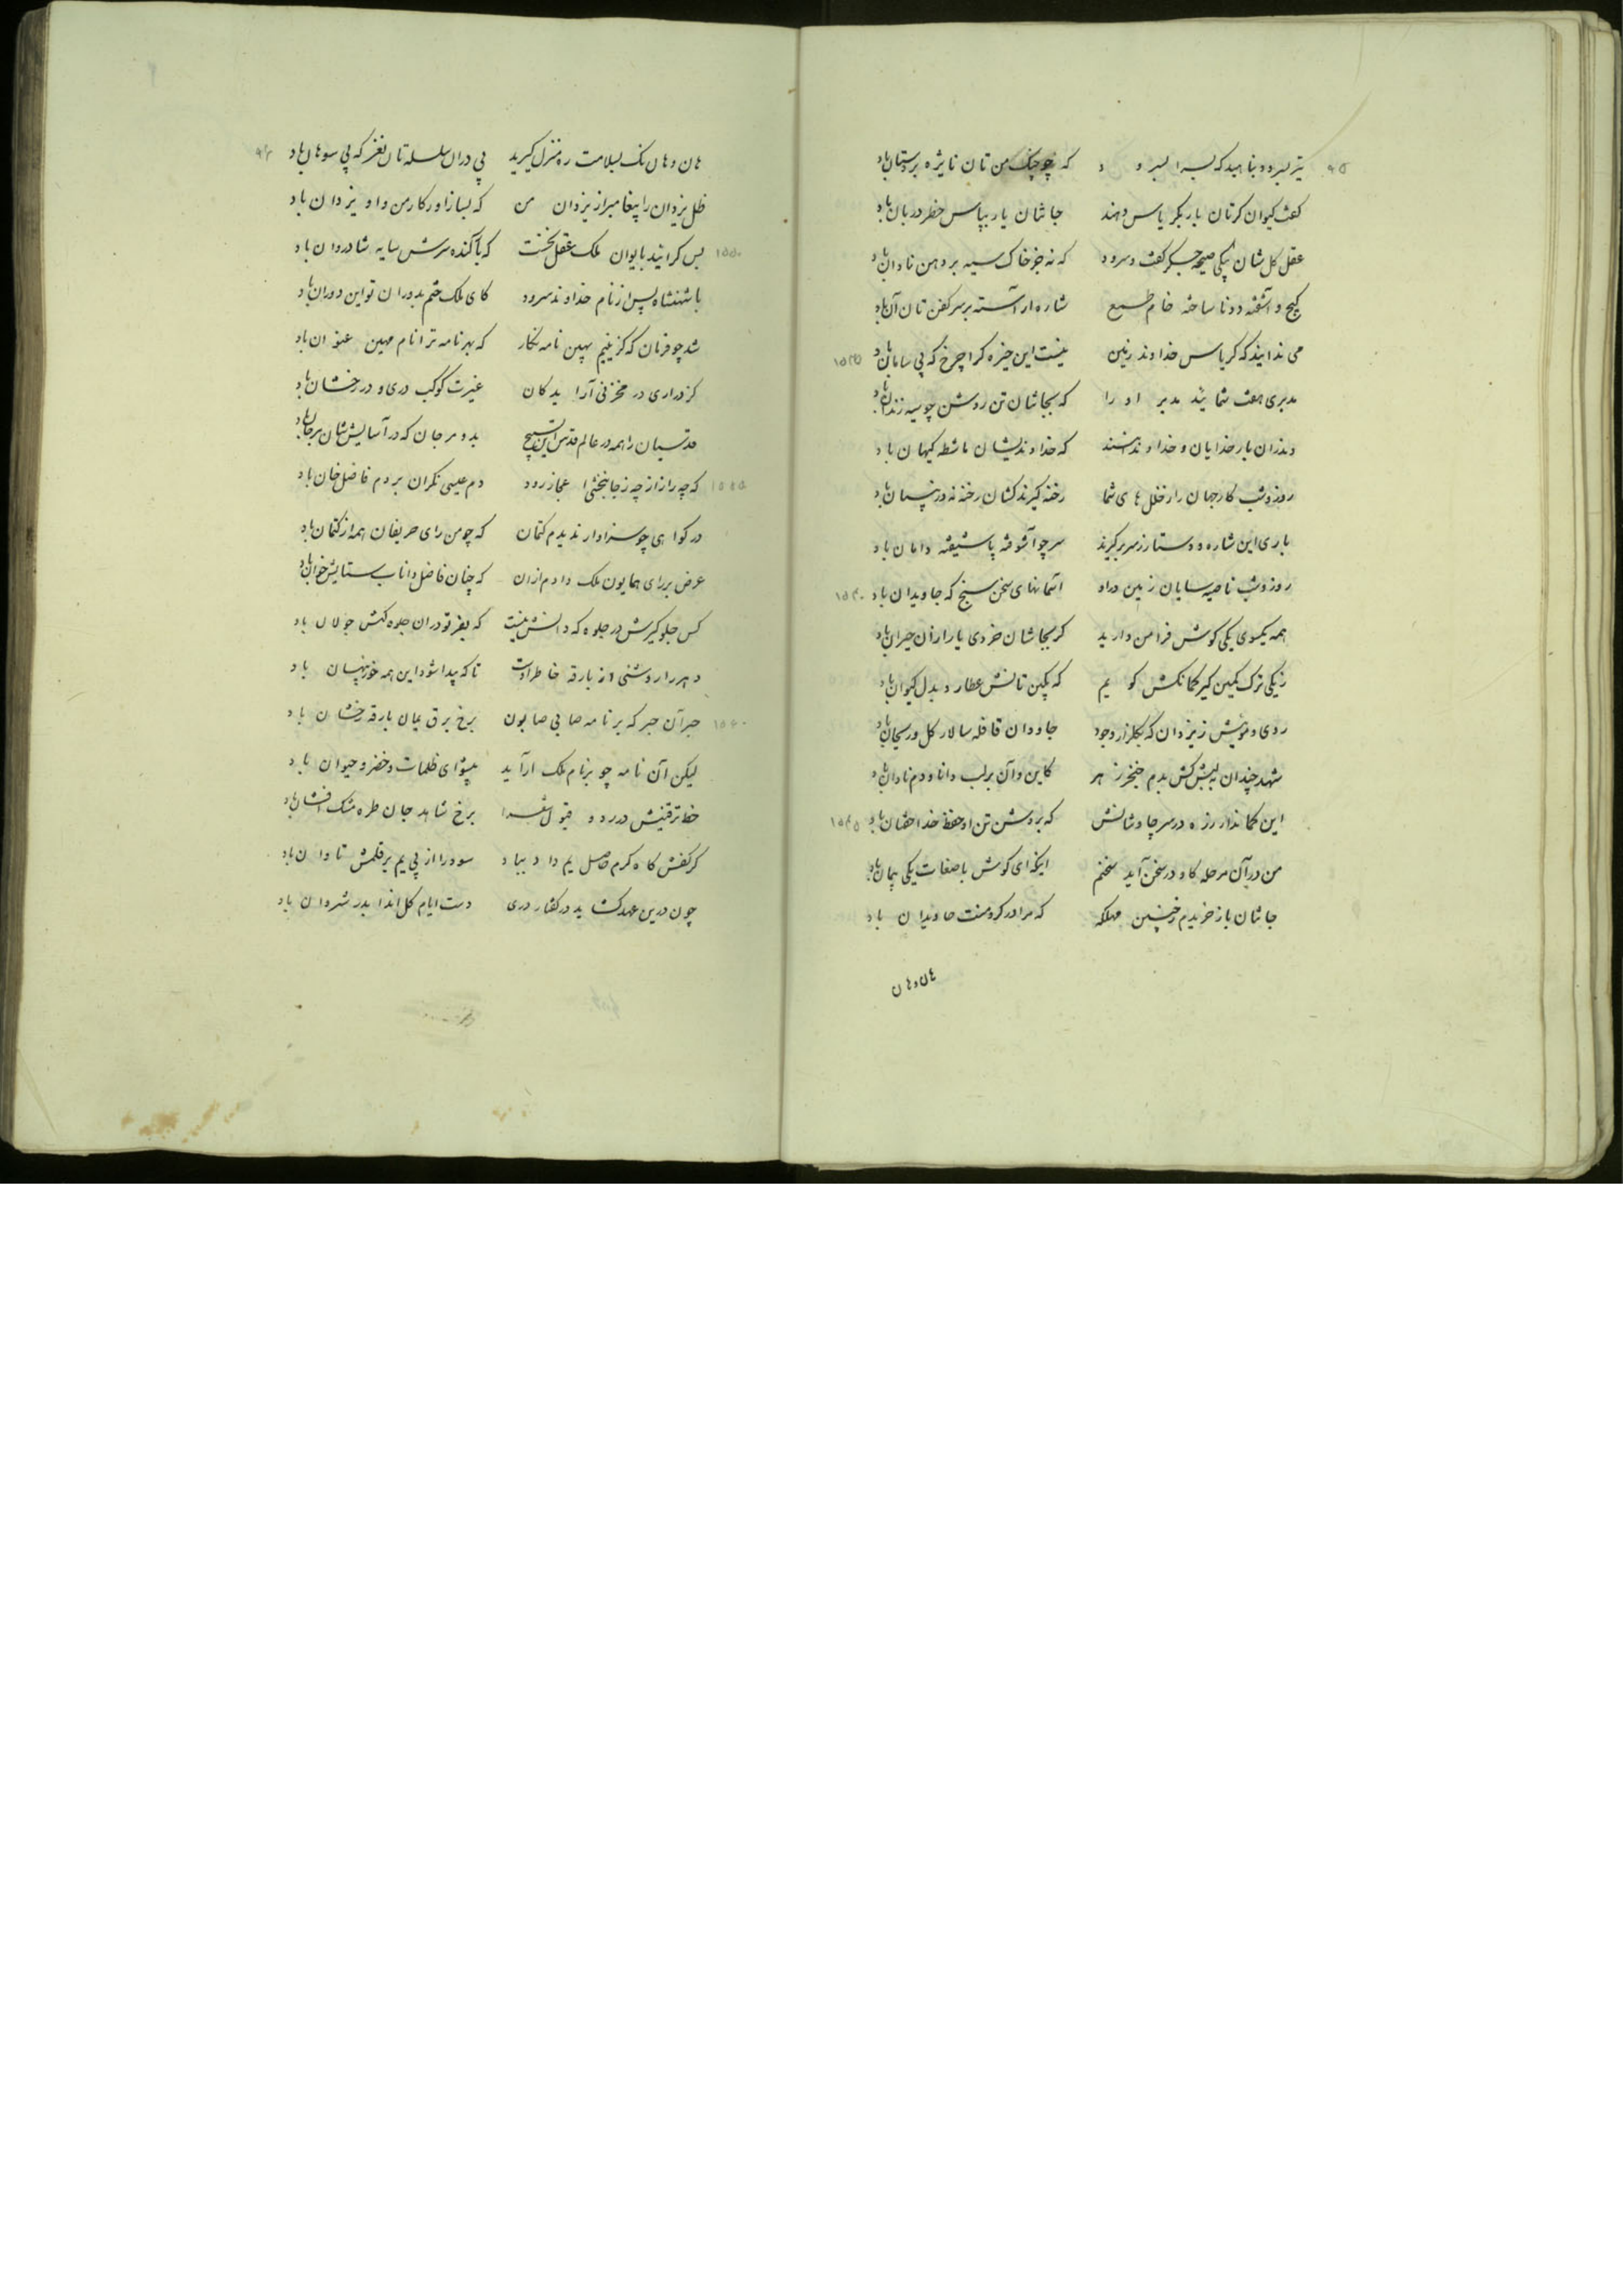 ۹۵
که چو چنگ من تان نایژه بر دستان باد
کفت کیوان کرتان بار بکریاس دهند جانتان یار بپاس خطر دربان باد
عقل کل شان بیکی صیحه جبر کفت و سرود که نه جز خاک سیه بر دهن نادان باد
کیج و آشفته دونا ساخته خام طمع شاره آراسته بر سر کفن تان آن باد
می ندانید که کریاس خداوند زمین نیست این خیره کرا چرخ که بی سامان باد ۱۵۳۵
مدبری هفت شمایید مدبر او را که بیجاشان تن روشن چو سیه زندان باد
و نزان بار خدایان و خداوند هشتند که خداوندیشان ماشطه کیهان باد
روز و شب کار جهان را ز خلل های شما رخنه گیرند کشان رخنه نه در بنیان باد
باری این شاره و دستار ز سر برگیرند سر چو آشوفته پا شیفته دامان باد
روز و شب ناصیه سایان زمین در او آسمانهای سخن سنج که جاویدان باد ۱۵۴۰
همه یکسوی یکی کوش فرا من دارید
زیکی ترک کمین گیر کمانکش کویم که بکین تانش عطارد بدل کیوان باد
روی و مویش ز یزدان که بگلزار وجود جاودان قافله سالار گل و ریحان باد
شهد چندان بلبش کش بدم خنجر زهر کاین و آن بر لب دانا و دم نادان باد
این کماندار زه در سر چاوشانش که بروشن تن او حفظ خدا خفتان باد ۱۵۴۵
من در آن مرحله کاو در سخن آید سخنم اینکه ای کوش باصغات یکی پیمان باد
جانتان باز خریدم ز چنین مهلکه که مرا در کرو منت جاویدان باد
هان و هان
هان و هان نک بسلامت ره منزل گیرید پی در ان سلسله تان نغز که پی سوهان باد
ظل یزدان را پیغامبر از یزدان من که بساز آور کار من و او یزدان باد
۱۵۵۰ پس کرانید بایوان ملک عقل نخست که باکنده سرش سایه شادروان باد
با شهنشاه پس از نام خداوند سرود کای ملک ختم بدوران تو این دوران باد
شد چو فرمان که گزینیم بهین نامه نگار که بهر نامه ترا نام مهین عنوان باد
کز دراری در مخزنی آراید کان غیرت کوکب دری و در رخشان باد
قدسیان را همه در عالم قدس این تسبیح
۱۵۵۵ که چه راز از چه ز جانبخشی اعجاز رود دم عیسی نگران بر دم فاضل خان باد
در کواهی چو سزاوار ندیدم کتمان که چو من رای حریفان همه از کتمان باد
عرض بر رای همایون ملک دادم ازان که چنان فاضل دانا بستایش خوان باد
کس جلوگیرش در جلوه که دانش نیست که بفر تو دران جلوه گهش جولان باد
دهر را روشنی از بارقه خاطر اوست تا که پیدا شود این همه خور پنهان باد
۱۵۶۰ حبر آن حبر که بر نامه صابی صابون برخ برق یمان بارقه رخشان باد
لیکن آن نامه چو بر نام ملک آراید پیشوای ظلمات و خضر و حیوان باد
خط ترقینش در رد و قبول شعرا برخ شاهد جان طره مشک افشان باد
گر کفش گاه کرم حاصل یم داد بباد سود را از پی یم بر قلمش تاوان باد
چون درین عهد کشاید در گفتار دری دست ایام گل اندا بدر شروان باد